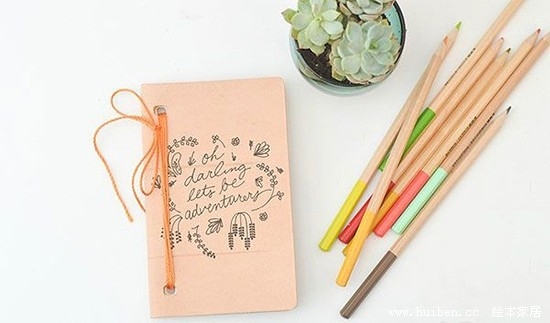 oh
darling
lets be
adventurers
www.huiben.cc 绘本家居